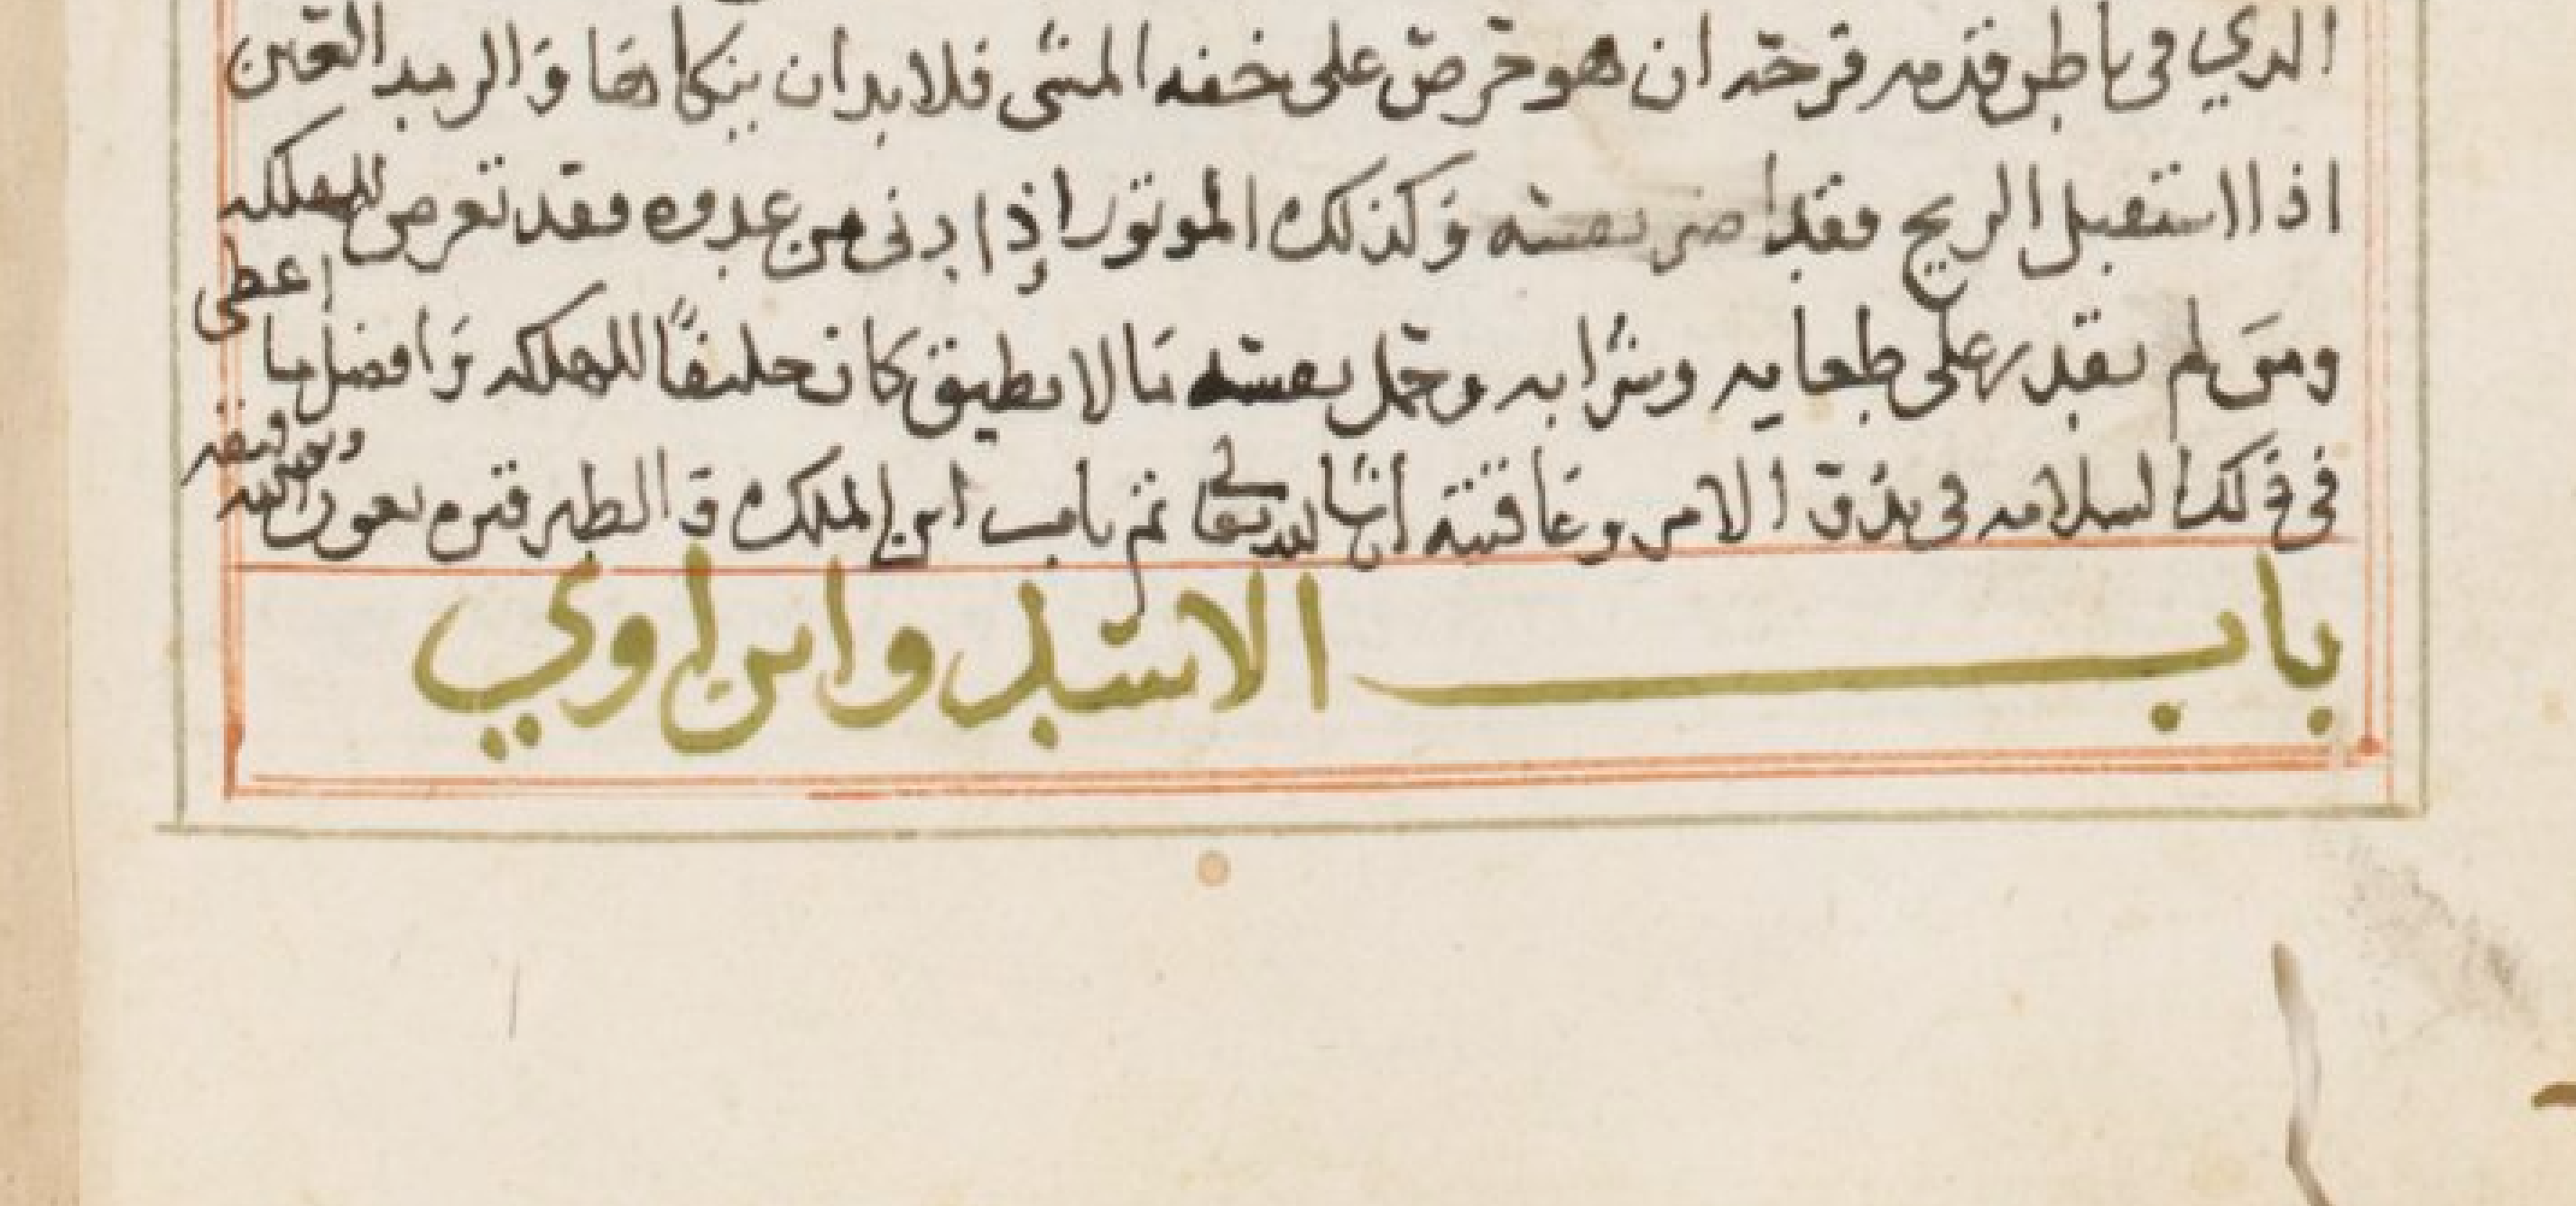 الذي في باطن قدمه قرحة ان هو حرص على خفه المشي فلا بد ان ينكاها وَالرمد العين
اذا استقبل الريح فقد اضر بنفسه وَكذلك الموتور اذا دنى من عدوه فقد تعرض للهلكه
ومن لم يقدر على طعامه وشرابه وحمل نفسه مَا لا يطيق كان حليفًا للهلكه وَافضل ما اعطى
في ذلك السلامه في الامر وعاقبته تم باب ابن الملك وَالطير فنزه بعون الله وتوفيقه
باب الاسد وابن اوي